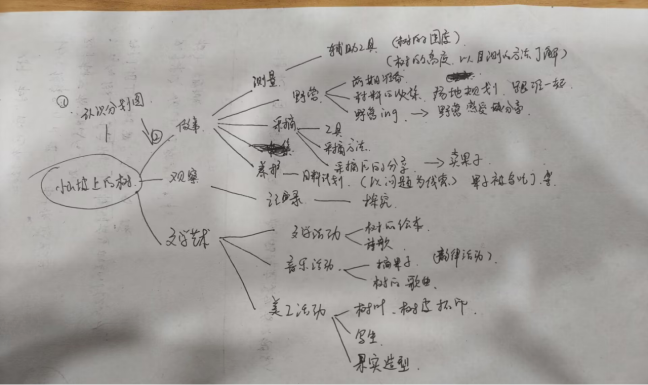 辅助工具 (树的围度)
测量 (树的高度 以目测的方法了解)
① 认识分划图
前期准备
野营 材料的收集 场地规划 跟谁一起
② 做事
野营ing → 野营感受 分享
采摘 工具
采摘方法
采摘后的分享 → 卖果子
养护 计划 (以问题为线索) 果子被虫吃了
小山坡上的树 观察 记录 探究
文学艺术 文学活动 树的绘本
诗歌
音乐活动 摘果子 (韵律活动)
树的歌曲
美工活动 树叶、树皮拓印
写生
果实造型